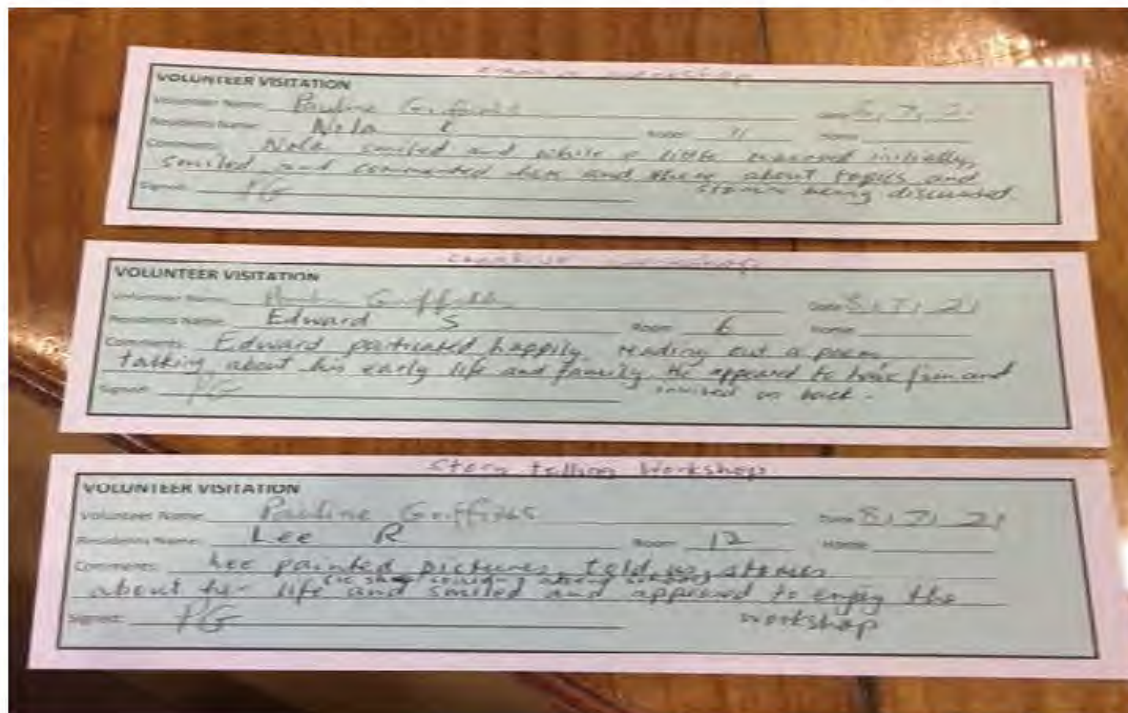 VOLUNTEER VISITATION
Volunteer Name: Pauline Griffiths Date 8, 7, 21
Residents Name: Nola Room 11 Home
Comments: Nola smiled and while a little reserved initially,
smiled and commented here and there about topics and
Signed: PG stories being discussed.
VOLUNTEER VISITATION
Volunteer Name: Griffiths Date 8, 7, 21
Residents Name: Edward S Room 6 Home
Comments: Edward particated happily, reading out a poem
talking about his early life and family. He appeared to have fun and
Signed: PG invited us back.
Story telling Workshop
VOLUNTEER VISITATION
Volunteer Name: Pauline Griffiths Date 8, 7, 21
Residents Name: Lee R Room 12 Home
Comments: Lee painted pictures, told us stories
about her life and smiled and appeared to enjoy the
Signed: PG workshop